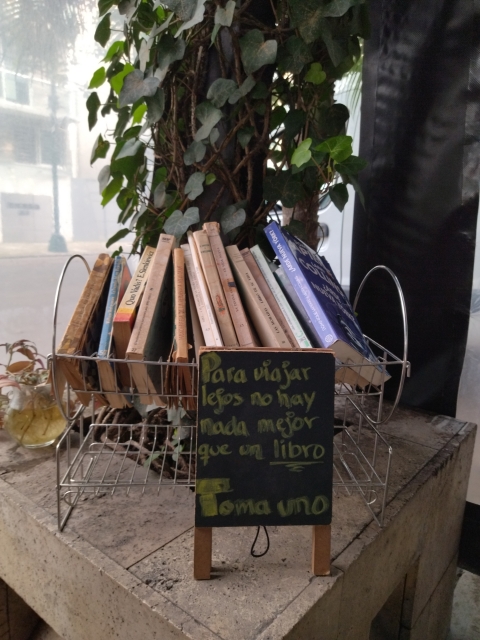 Para viajar
lejos no hay
nada mejor
que un libro
Toma uno